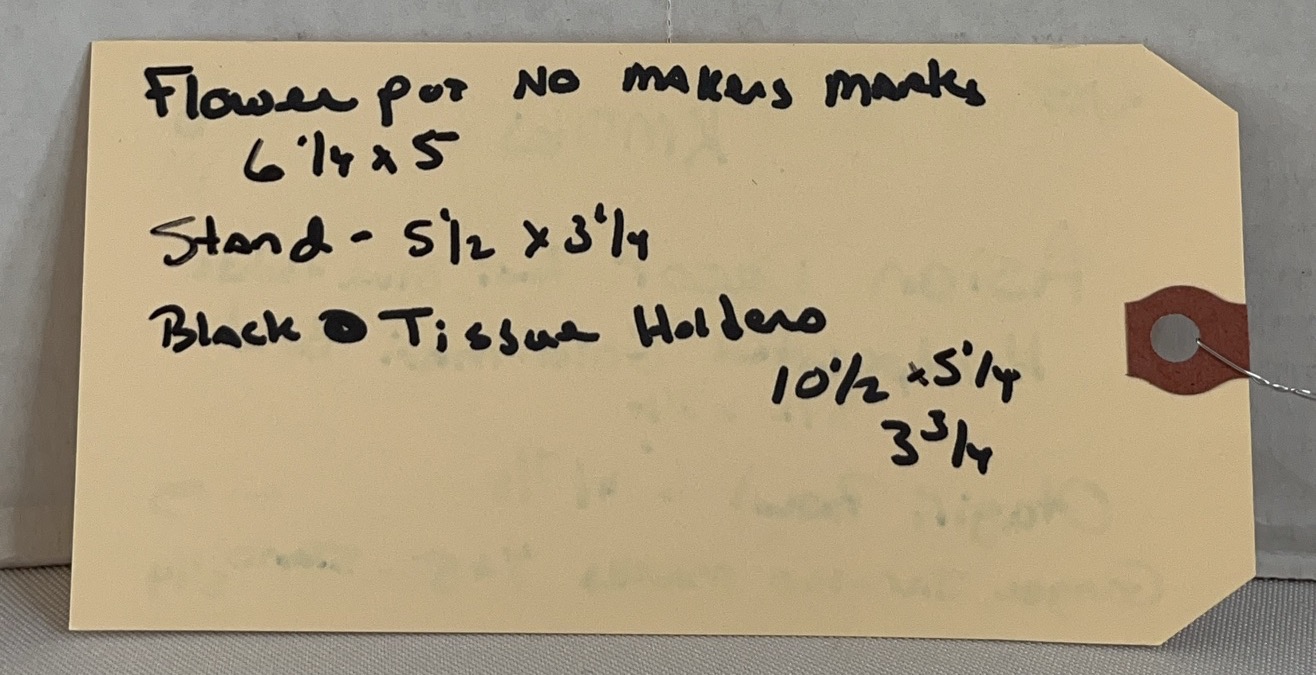 Flower pot No makers marks
6 1/4 x 5
Stand - 5 1/2 x 3 1/4
Black Tissue Holders
10 1/2 x 5 1/4
3 3/4